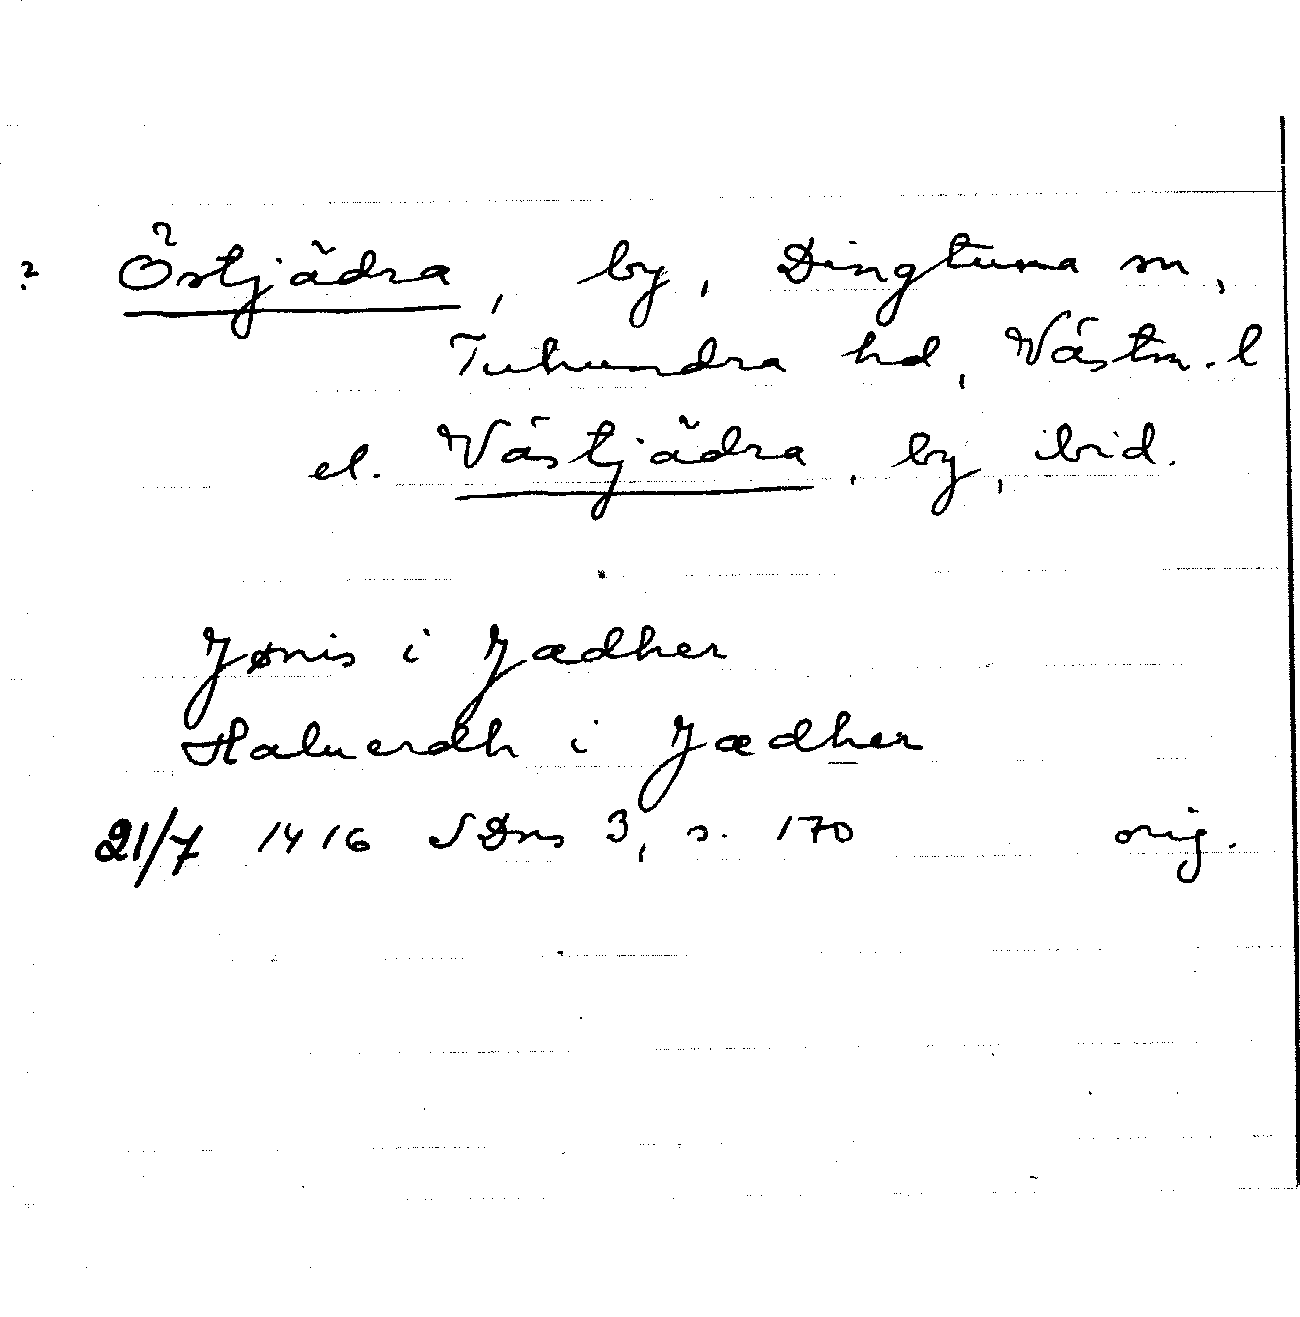 ? Östjädra, by, Dingtuna sn,
Tuhundra hd, Västm. l
el. Västjädra, by, ibid.
Jønis i Jædher
Haluerdh i Jædher
21/7 1416 SDns 3, s. 170 orig.